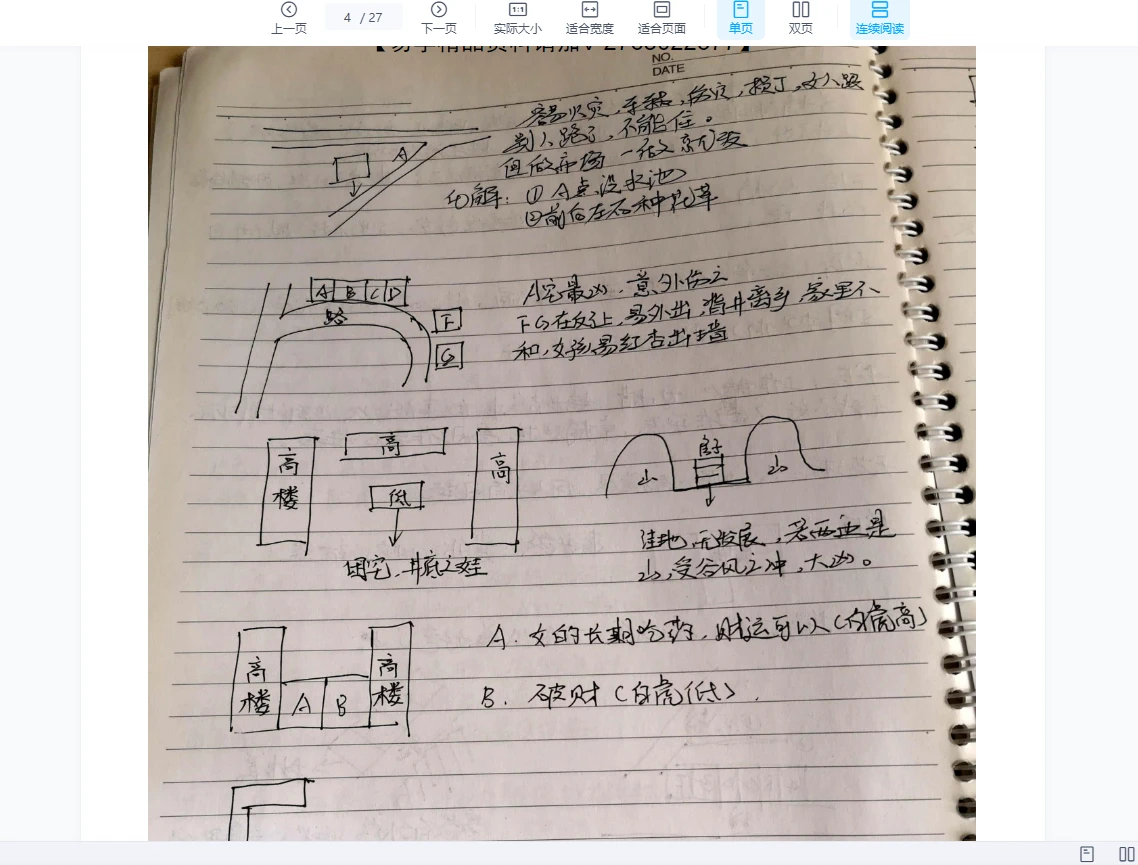 上一页
4 / 27
下一页
1:1
实际大小
适合宽度
适合页面
单页
双页
连续阅读
NO.
DATE
容易火灾,车祸,伤灾,损丁,
剪刀路了,不能住。
但做市场 一做 就发
化解:① A点设水池
②前后左右种花草
A
A B C D
路
F
G
A宅最凶,意外伤亡
FG在反弓上,易外出,背井离乡,家里不
和,女孩易红杏出墙
高楼
高
低
高
困宅,井底之蛙
山
房子
山
洼地,无发展,若两边是
山,受谷风之冲,大凶。
高楼
A
B
高楼
A. 女的长期吃药,财运可以(白虎高)
B. 破财(白虎低).